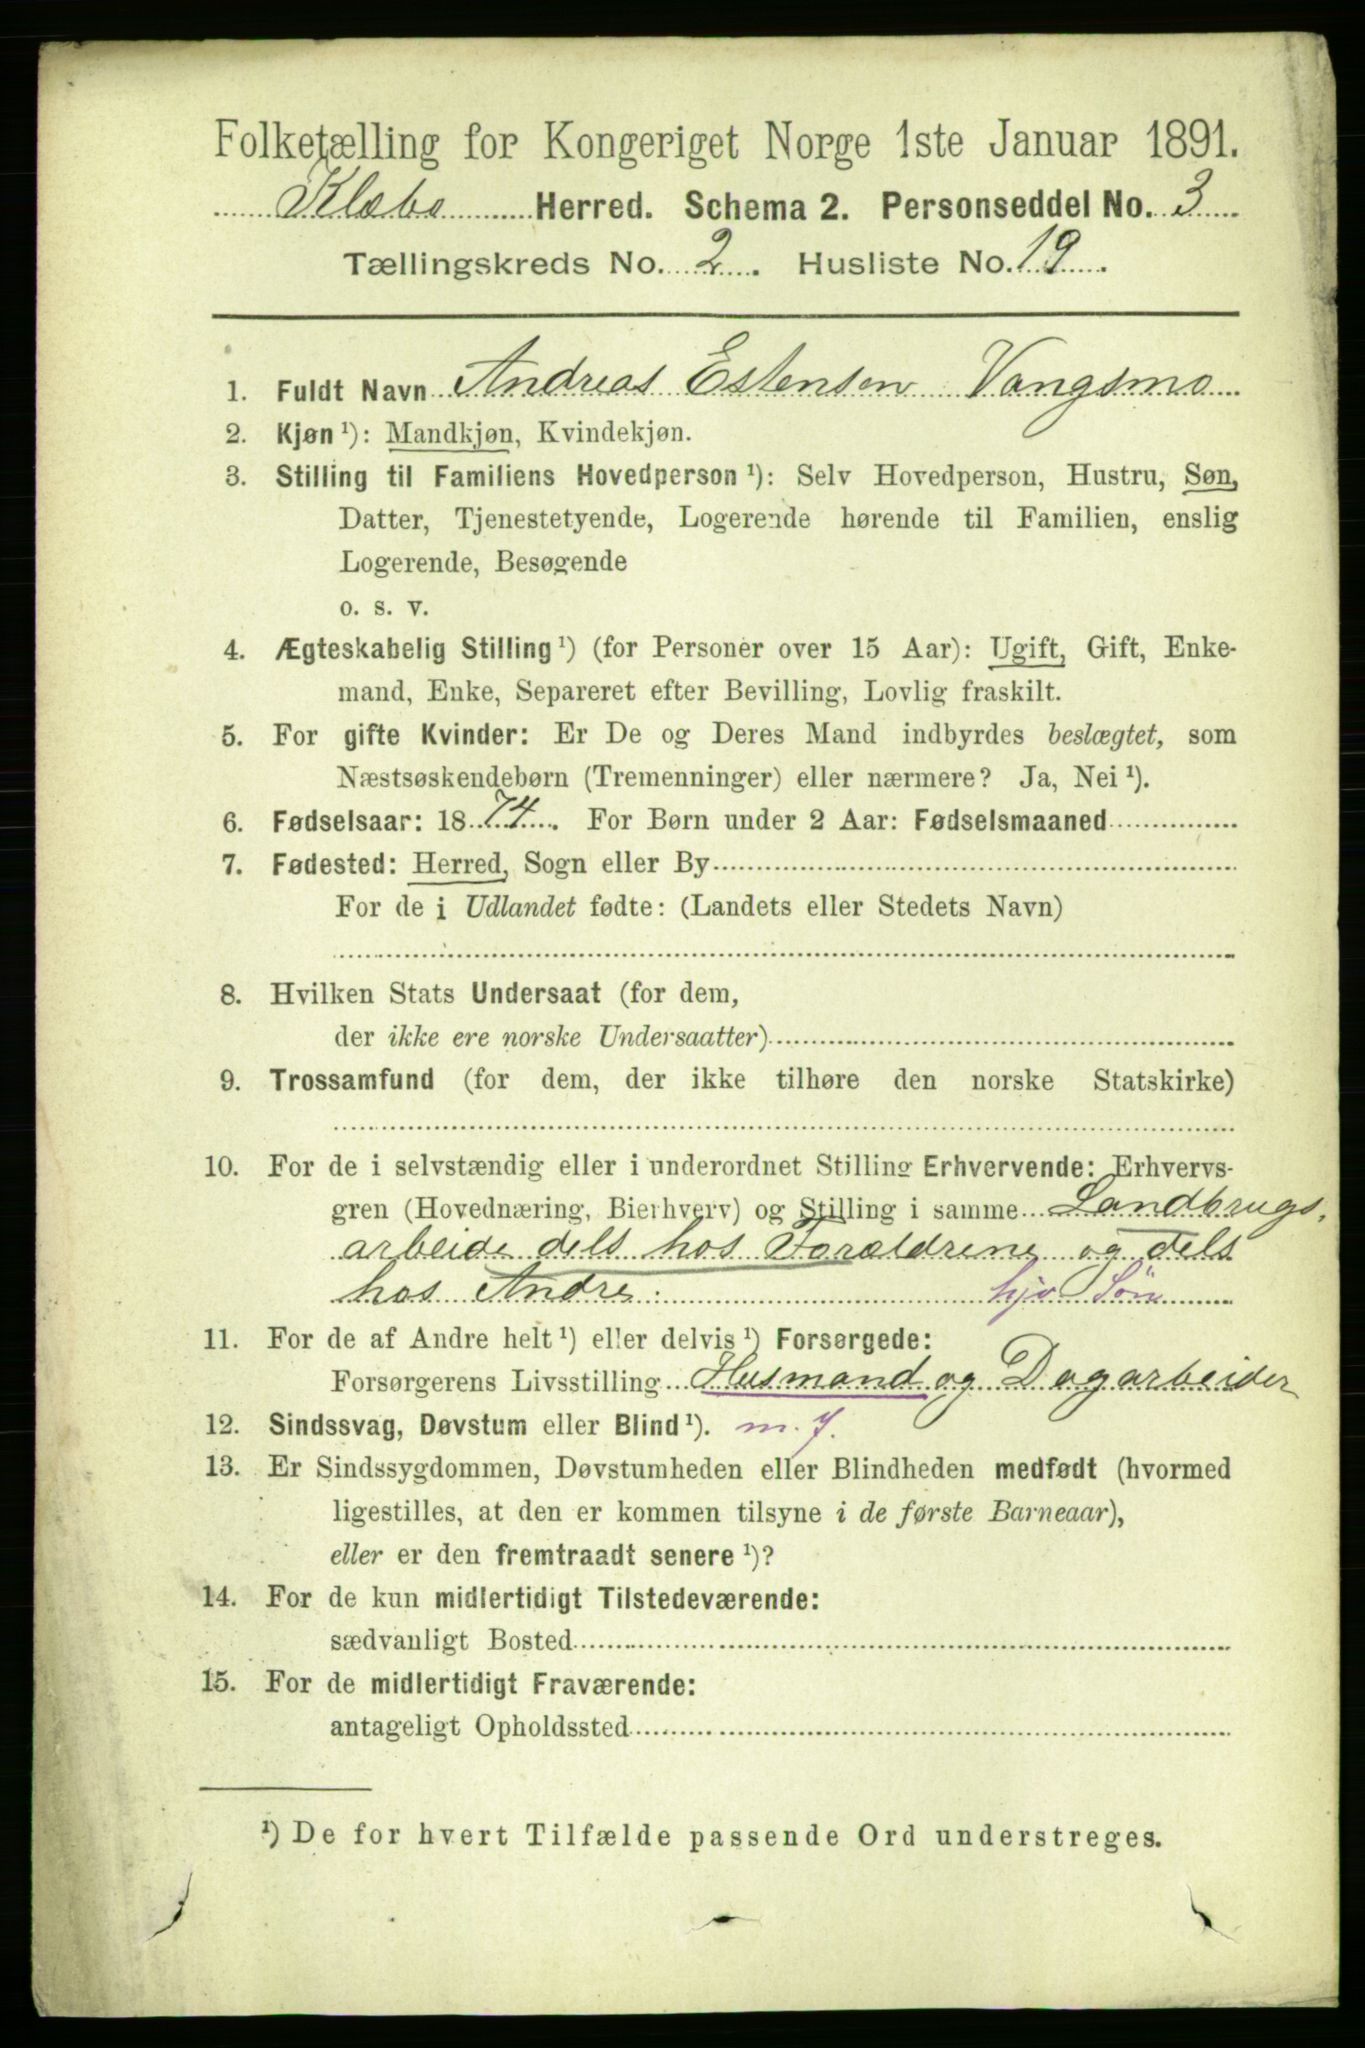 Folketælling for Kongeriget Norge 1ste Januar 1891.
Klæbo Herred. Schema 2. Personseddel No. 3
Tællingskreds No. 2. Husliste No. 19.
1. Fuldt Navn Andreas Estensen Vangsmo
2. Kjøn ¹): Mandkjøn, Kvindekjøn.
3. Stilling til Familiens Hovedperson ¹): Selv Hovedperson, Hustru, Søn,
Datter, Tjenestetyende, Logerende hørende til Familien, enslig
Logerende, Besøgende
o. s. v.
4. Ægteskabelig Stilling ¹) (for Personer over 15 Aar): Ugift, Gift, Enke-
mand, Enke, Separeret efter Bevilling, Lovlig fraskilt.
5. For gifte Kvinder: Er De og Deres Mand indbyrdes beslægtet, som
Næstsøskendebørn (Tremenninger) eller nærmere? Ja, Nei ¹).
6. Fødselsaar: 1874. For Børn under 2 Aar: Fødselsmaaned
7. Fødested: Herred, Sogn eller By
For de i Udlandet fødte: (Landets eller Stedets Navn)
8. Hvilken Stats Undersaat (for dem,
der ikke ere norske Undersaatter)
9. Trossamfund (for dem, der ikke tilhøre den norske Statskirke)
10. For de i selvstændig eller i underordnet Stilling Erhvervende: Erhvervs-
gren (Hovednæring, Bierhverv) og Stilling i samme Landbrugs,
arbeide dels hos Forældrene og dels
hos Andre. hjv Søn
11. For de af Andre helt ¹) eller delvis ¹) Forsørgede:
Forsørgerens Livsstilling Husmand og Dagarbeider
12. Sindssvag, Døvstum eller Blind ¹). m. j.
13. Er Sindssygdommen, Døvstumheden eller Blindheden medfødt (hvormed
ligestilles, at den er kommen tilsyne i de første Barneaar),
eller er den fremtraadt senere ¹)?
14. For de kun midlertidigt Tilstedeværende:
sædvanligt Bosted
15. For de midlertidigt Fraværende:
antageligt Opholdssted
¹) De for hvert Tilfælde passende Ord understreges.